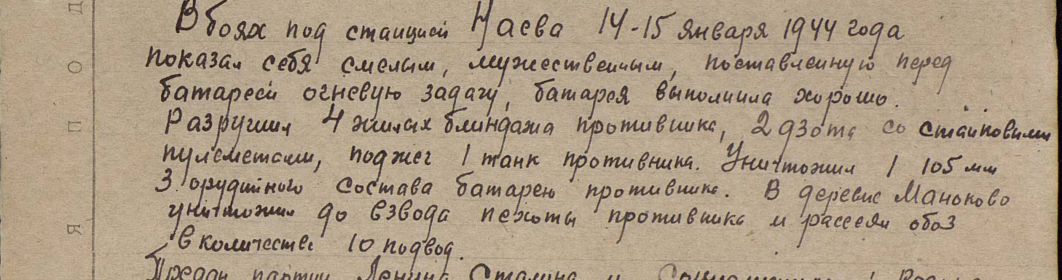 В боях под станцией Наева 14-15 января 1944 года
показал себя смелым, мужественным, поставленную перед
батареей огневую задачу, батарея выполнила хорошо.
Разрушил 4 жилых блиндажа противника, 2 дзота со станковыми
пулеметами, поджег 1 танк противника. Уничтожил 1 105 мм
3 орудийного состава батарею противника. В деревне Маноково
уничтожил до взвода пехоты противника и рассеял обоз
в количестве 10 подвод.
Предан партии Ленина Сталина и
Д
О
П
Я